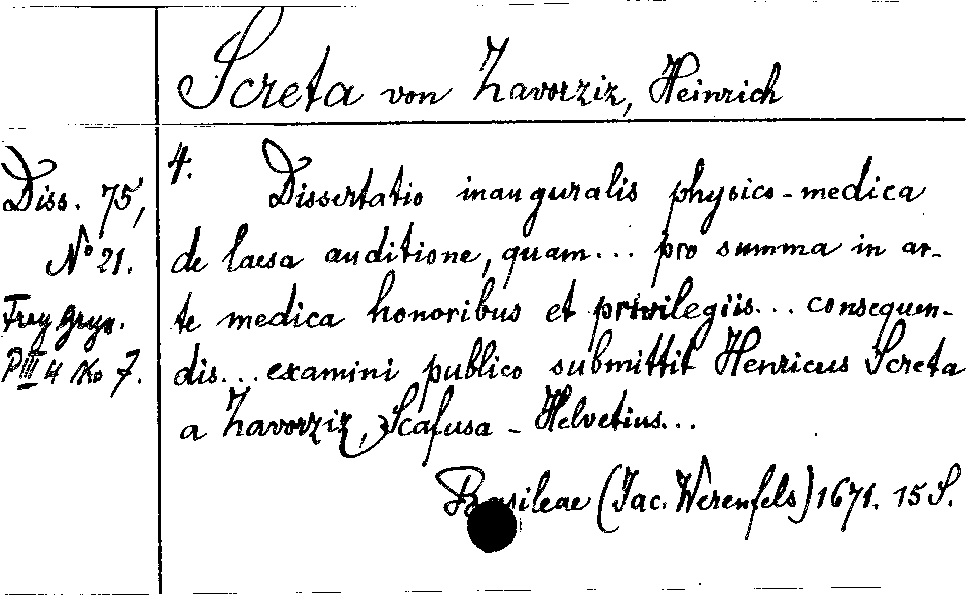 Screta von Zavorziz, Heinrich
Diss. 75,
No 21.
Frey Gryn.
P III 4 No 7.
4. Dissertatio inauguralis physico-medica
de laesa auditione, quam... pro summa in ar-
te medica honoribus et privilegiis... consequen-
dis... examini publico submittit Henricus Screta
a Zavorziz, Scafusa - Helvetius...
Basileae (Jac. Werenfels) 1671. 15 S.